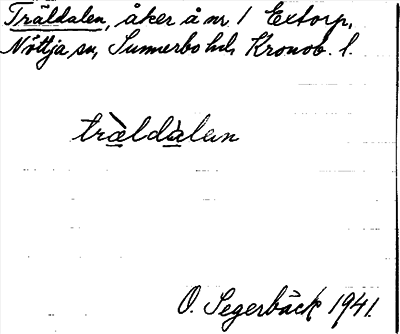 Träldalen, åker å nr 1 Extorp,
Nöttja sn, Sunnerbo hd, Kronob. l.
trä̀ldàlen
O. Segerbäck 1941.